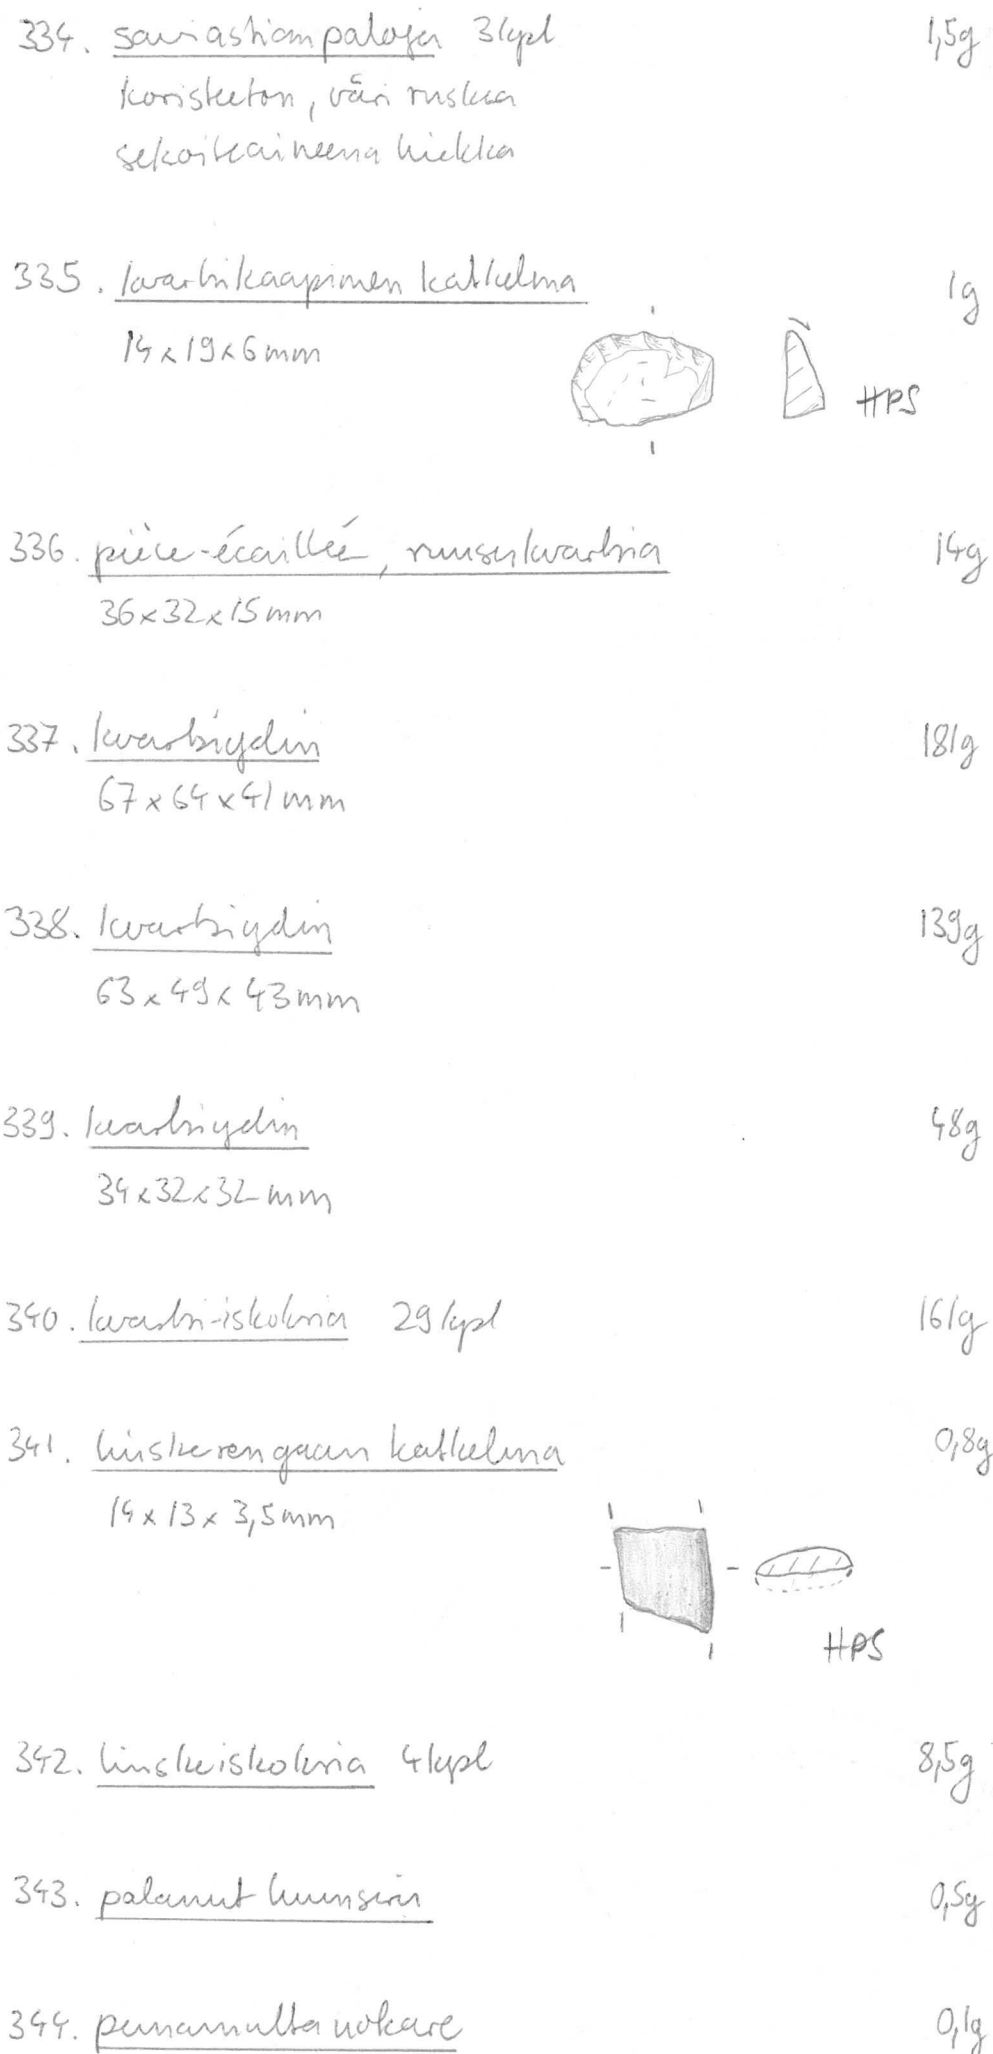 334. saviastian paloja 3 kpl 1,5g
koristeeton, väri ruskea
sekoiteaineena hiekka
335. kvartsikaapimen katkelma 1g
14x19x6mm
HPS
336. pièce-écaillée, ruusukvartsia 14g
36x32x15mm
337. kvartsiydin 181g
67x64x41mm
338. kvartsiydin 139g
63x49x43mm
339. kvartsiydin 48g
34x32x32mm
340. kvartsi-iskoksia 29 kpl 161g
341. liuskerenkaan katkelma 0,8g
14x13x3,5mm
HPS
342. liuskeiskoksia 4 kpl 8,5g
343. palanut luunsiru 0,5g
344. punamultanokare 0,1g